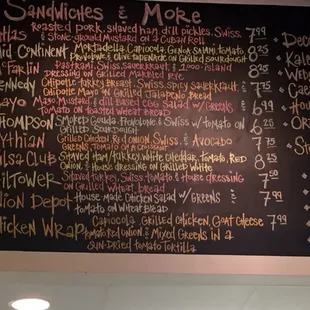 Sandwiches & More
Roasted pork, shaved ham, dill pickles, Swiss,
& Stoneground Mustard on a Cuban Roll 7.99
Mid Continent Mortadella, Capicola, Genoa Salami, Tomato, 8.25
Provolone & Olive Tapenade on Grilled Sourdough
Pastrami, Swiss, Sauerkraut & 1,000 Island 8.25
Dressing on Grilled Marbled Rye
Chipotle Turkey Breast, Swiss, Spicy Sauerkraut &
Chipotle Mayo on Grilled Jalapeño Bread
Mayo, Mustard & Dill Based Egg Salad w/ Greens & 6.99
Tomato on Toasted Wheat Bread
Thompson Smoked Gouda, Provolone & Swiss w/ Tomato on 6.25
Grilled Sourdough
Grilled Chicken, Red Onion, Swiss & Avocado 7.75
Greens, Tomato on a Croissant
Tulsa Club Shaved Ham, Turkey, White Cheddar, Tomato, Red 8.25
Onion & House Dressing on Grilled Wheat
Philtower Shaved Turkey, Swiss, Tomato & House Dressing 7.50
on Grilled Wheat Bread
Union Depot House Made Chicken Salad w/ Greens &
Tomato on Wheat Bread
Chicken Wrap Capicola, Grilled Chicken, Goat Cheese 7.99
Tomato, Red Onion & Mixed Greens in a
Sun-Dried Tomato Tortilla